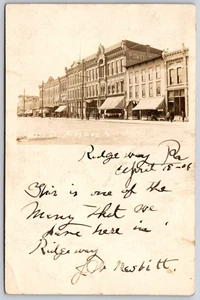 Ridgeway Pa
April 15-06
This is one of the
Many that we
have here in
Ridgeway
Nesbitt.